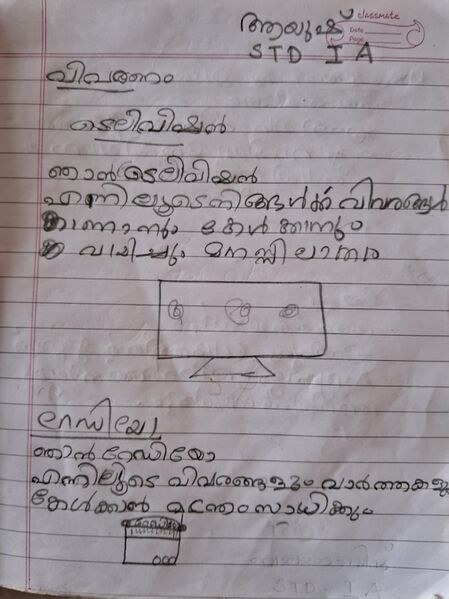 ആയുഷ്
classmate
Date
Page
STD I A
വിവരണം
ടെലിവിഷൻ
ഞാൻ ടെലിവിഷൻ
എന്നിലൂടെ നിങ്ങൾക്ക് വിവരങ്ങൾ
കാണാനും കേൾക്കാനും
വായിച്ചും മനസ്സിലാക്കാം
റേഡിയോ
ഞാൻ റേഡിയോ
എന്നിലൂടെ വിവരങ്ങളും വാർത്തകളും
കേൾക്കാൻ മാത്രം സാധിക്കും
STD I A